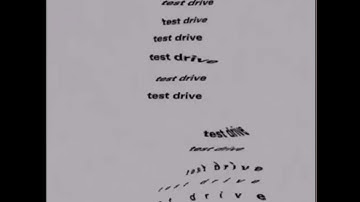 test drive
test drive
test drive
test drive
test drive
test drive
test drive
test drive
test drive
test drive
st drive